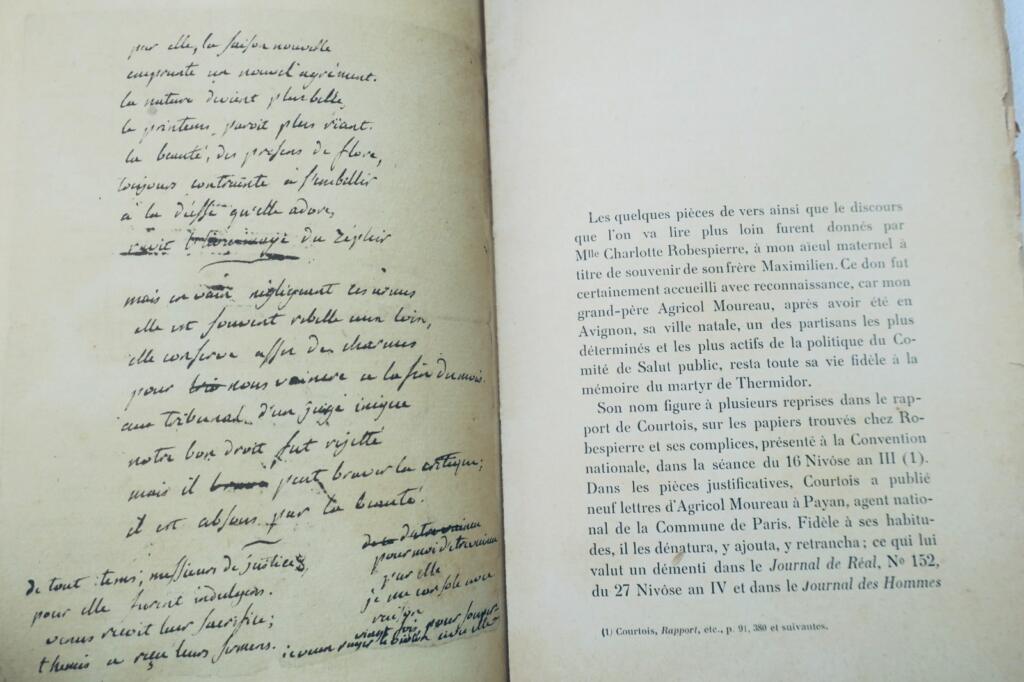 par elle, la saison nouvelle
emprunte un nouvel agrément.
la nature devient plus belle,
le printems paroit plus riant.
la beauté, des presens de flore,
toujours contrainte a s'embellir
a la déesse qu'elle adore,
du Zéphir
mais en vain négligeant ses armes
elle est souvent rebelle aux loix,
elle conserve assez de charmes
pour nous vaincre a la fin du mois.
au tribunal d'un juge inique
notre bon droit fut rejetté
mais il peut braver la critique;
il est absous par la beauté.
de tout tems, messieurs de justice
pour elle furent indulgens.
venus reçoit leur sacrifice;
themis a reçu leurs sermens.
pour moi
par elle
je me console avec
pour
Les quelques pièces de vers ainsi que le discours
que l'on va lire plus loin furent donnés par
Mlle Charlotte Robespierre, à mon aïeul maternel à
titre de souvenir de son frère Maximilien. Ce don fut
certainement accueilli avec reconnaissance, car mon
grand-père Agricol Moureau, après avoir été en
Avignon, sa ville natale, un des partisans les plus
déterminés et les plus actifs de la politique du Co-
mité de Salut public, resta toute sa vie fidèle à la
mémoire du martyr de Thermidor.
Son nom figure à plusieurs reprises dans le rap-
port de Courtois, sur les papiers trouvés chez Ro-
bespierre et ses complices, présenté à la Convention
nationale, dans la séance du 16 Nivôse an III (1).
Dans les pièces justificatives, Courtois a publié
neuf lettres d'Agricol Moureau à Payan, agent natio-
nal de la Commune de Paris. Fidèle à ses habitu-
des, il les dénatura, y ajouta, y retrancha ; ce qui lui
valut un démenti dans le Journal de Réal, No 152,
du 27 Nivôse an IV et dans le Journal des Hommes
(1) Courtois, Rapport, etc., p. 91, 380 et suivantes.